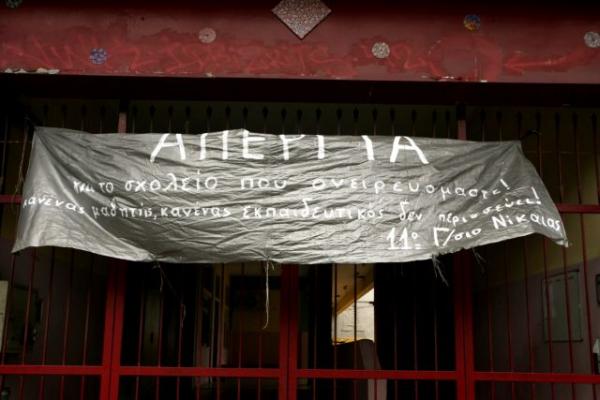 ΑΠΕΡΓΙΑ
για το σχολείο που ονειρευόμαστε!
κανένας μαθητής, κανένας εκπαιδευτικός δεν περισσεύει!
11ο Γ/σιο Νίκαιας